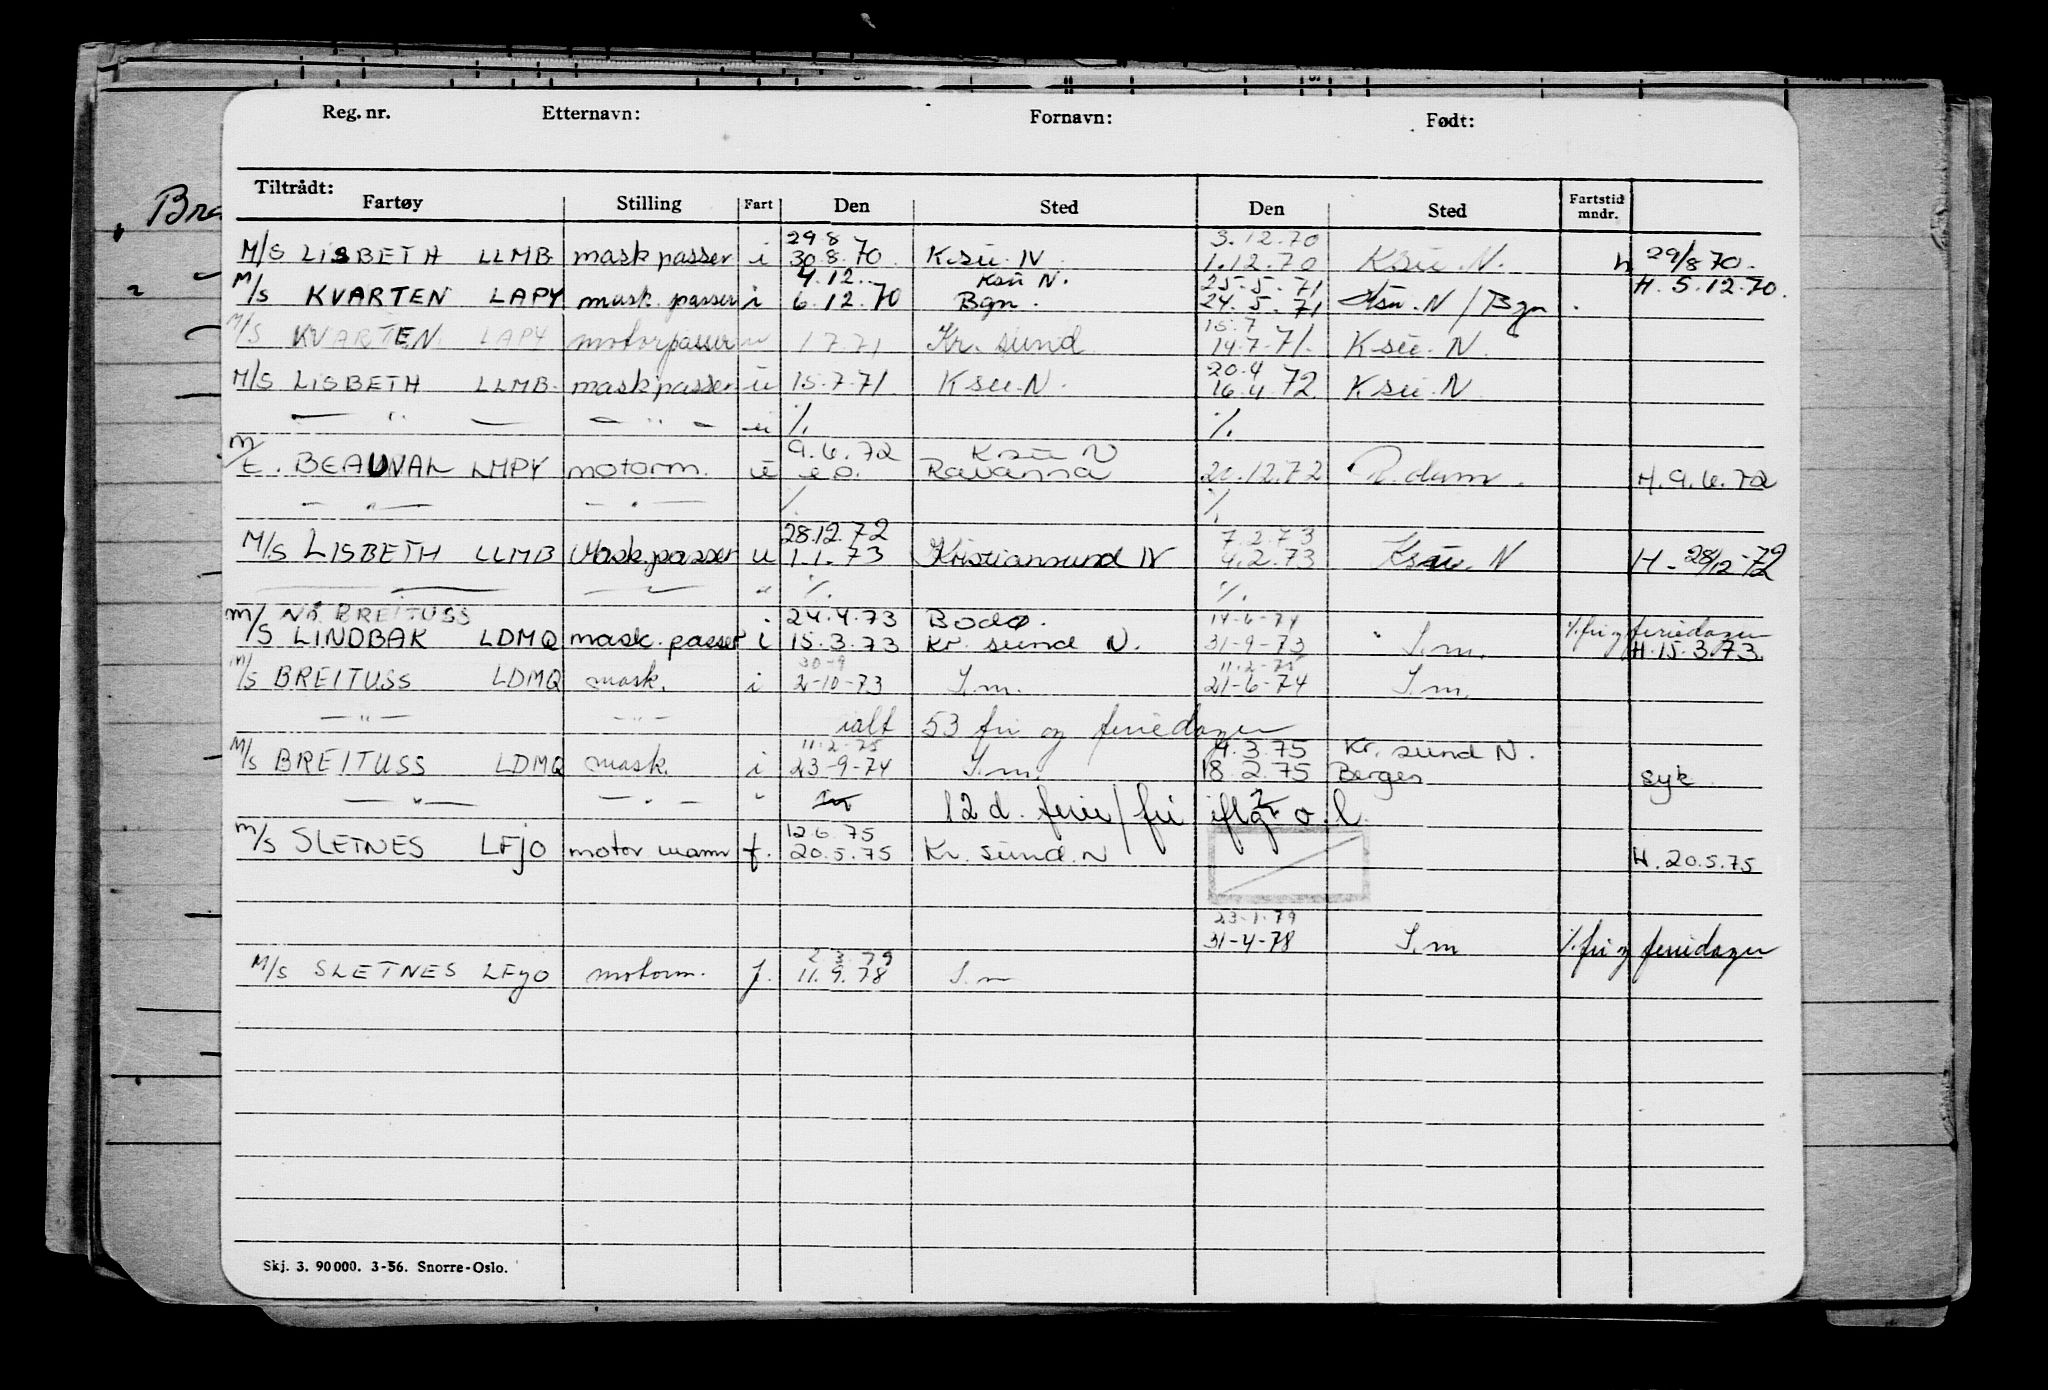 Reg. nr. Etternavn: Fornavn: Født:
Tiltrådt:
Fartøy Stilling Fart Den Sted Den Sted Fartstid mndr.
Bra
29 8 3.12.70
M/S LISBETH LLMB mask passer i 30.8.70 K.sü. N 1.12.70 K.sü. N. h 29/8 70.
4.12. Ksü N. 25.5.71 H. 5.12.70.
M/S KVARTEN LAPY mask. passer i 6.12.70 Bgn. 24.5.71 Ksü. N / Bgn
15.7
M/S KVARTEN LAPY motorpasser u 1 7.71 Kr. sund 14.7.71. K sü. N.
20.4
M/S LISBETH LLMB mask passer ü 15.7.71. K sü. N. 16.4 72 K sü. N
— " — — " — ü %. %.
9.6.72 Ksü N
M/E. BEAUVAL LMPY motorm. ü e.o. Ravenna 20.12.72 R.dam. H. 9.6.72
— " — — " — %. %.
28.12.72 7.2.73
M/S LISBETH LLMB Mask.passer u 1.1.73 Kristiansund N 4.2.73 Ksü. N H - 28/12-72
— — " %. %.
NÅ BREITUSS 24.4.73 Bodø. 14-6-74 %.fri og feriedager
M/S LINDBAK LDMQ mask. passer i 15.3.73 Kr. sund N. 31-9-73 S.m. H.15.3.73.
30-9 11-2-75
M/S BREITUSS LDMQ mask. i 2-10-73 S.m. 21-6-74 S.m.
— " — — " — ialt 53 fri og feriedager
11-2-75 4.3.75 Kr. sund N.
M/S BREITUSS LDMQ mask. i 23-9-74 S.m. 18.2.75 Bergen syk
— " — — " — " 12 d. ferie/fri iflg o.l.
12.6.75
M/S SLETNES LFJO motormann f. 20.5.75 Kr. sund. N H. 20.5.75
23-1-79
31-4-78 S.m %.fri og feriedager
2.3.79
M/S SLETNES LFJO motorm. f. 11.9.78 S.m
Skj. 3. 90 000. 3-56. Snorre-Oslo.